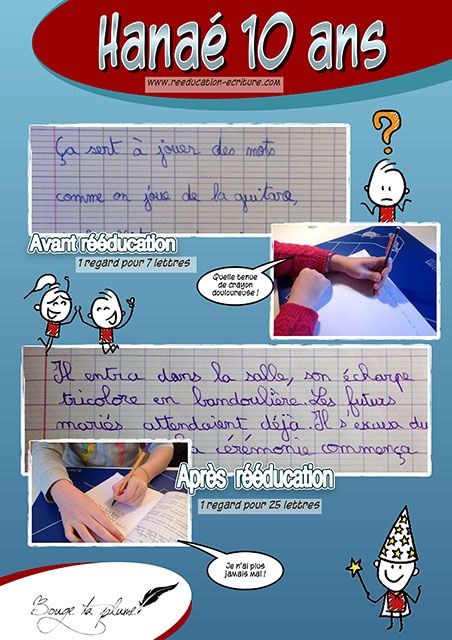 Hanaé 10 ans
www.reeducation-ecriture.com
Ça sert à jouer des mots
comme on joue de la guitare,
Avant rééducation
1 regard pour 7 lettres
?
Quelle tenue
de crayon
douloureuse !
Il entra dans la salle, son écharpe
tricolore en bandoulière. Les futurs
mariés attendaient déjà. Il s'excusa du
la cérémonie commença
Après rééducation
1 regard pour 25 lettres
Je n'ai plus
jamais mal !
Bouge ta plume